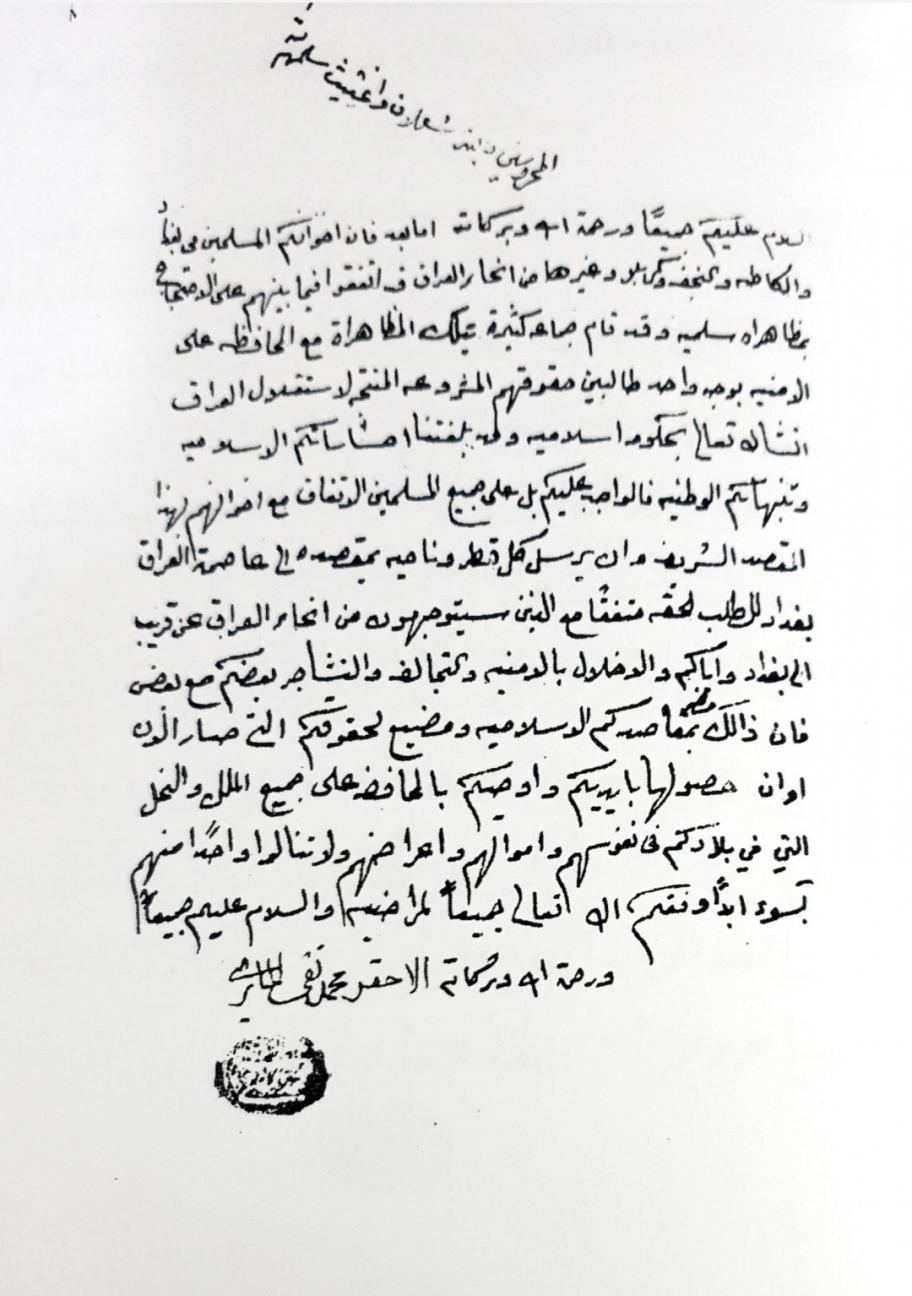 ٨
المحروسين وابن شعلان واغثيث سلمهم
السلام عليكم جميعًا ورحمة الله وبركاته اما بعد فان اخوانكم المسلمين في بغداد
والكاظميه والنجف وكربلا وغيرها من انحاء العراق قد اتفقوا فيما بينهم على الاحتجاج
بمظاهراة سلميه وقد قام جماعه كثيرة بتلك المظاهراة مع المحافظه على
الامنيه بوجه واحد طالبين حقوقهم المشروعه المنتجه لاستقلال العراق
انشاله تعالى بحكومه اسلاميه وقد بلغتنا احشاساتكم الاسلاميه
وتنبهاتكم الوطنيه فالواجب عليكم بل على جميع المسلمين الاتفاق مع اخوانهم لهذا
المقصد الشريف وان يرسل كل قطر وناحيه بمقصده الى عاصمة العراق
بغداد للطلب لحقه متفقًا مع الذين سيتوجهون من انحاء العراق عن قريب
الى بغداد واياكم والاخلال بالامنيه والتخالف والتشاجر بعضكم مع بعض
فان ذالك مضر بمقاصدكم الاسلاميه ومضيع لحقوقكم التي صار الآن
اوان حصولها بايديكم واوصيكم بالمحافضه على جميع الملل والنحل
التي في بلادكم في نفوسهم واموالهم واعراضهم ولا تنالوا واحدًا منهم
بسوء ابدًا وفقكم الله تعالى جميعاً لمراضيه والسلام عليكم جميعاً
ورحمة الله وبركاته الاحقر محمد تقي الحائري